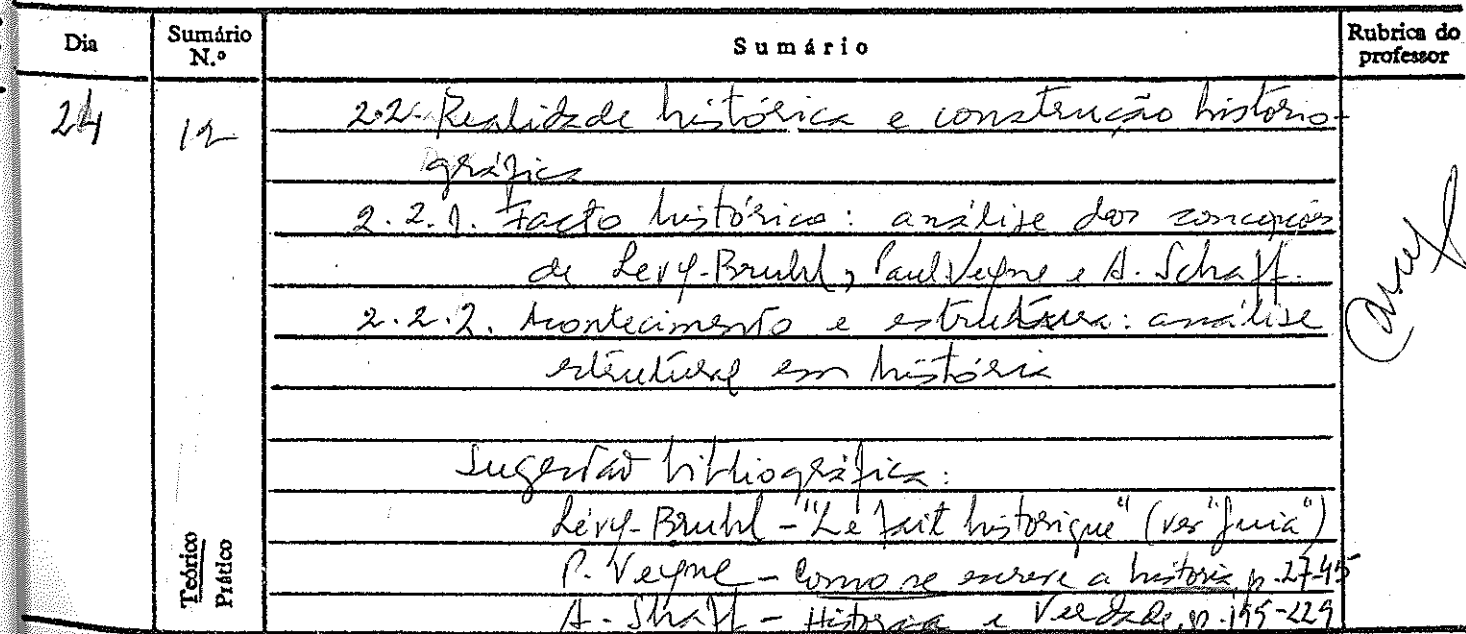 Dia Sumário N.º Sumário Rubrica do professor
24 12 2.2. Realidade histórica e construção historio-
gráfica
2.2.1. Facto histórico: análise das concepções
de Levy-Bruhl, Paul Veyne e A. Schaff.
2.2.2. Acontecimento e estrutura: análise
estrutural em história
Sugestão bibliográfica:
Lévy-Bruhl - "Le fait historique" (ver "guia")
P. Veyne - Como se escreve a história, p. 27-45
A. Shaff - História e Verdade, p. 195-229
Teórico
Prático